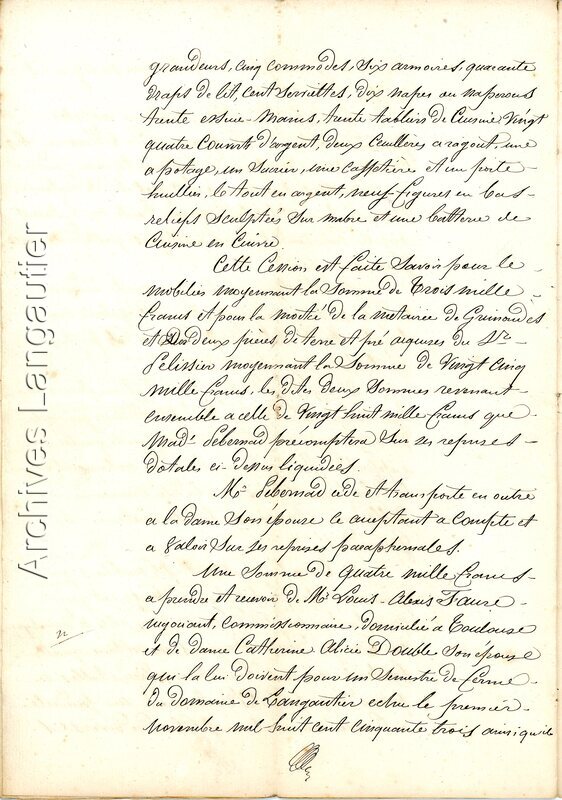 grandeurs, cinq commodes, six armoires, quarante
draps de lit, cent serviettes, dix napes ou naperons
trente essuie-mains, trente tabliers de Cuisine Vingt
quatre Couverts d'argent, deux Cuillères a ragout, une
a potage, un Sucrier, une Caffetière et un porte
huillier, le tout en argent, neuf figures en bas-
reliefs Sculptées Sur mabre et une batterie de
Cuisine en Cuivre
Cette Cession est faite Savoir pour le
mobilier moyennant la Somme de Trois mille
francs et pour la moitié de la métairie de
et Des deux pièces de terre et pré aquises du Sr.
Pelissier moyennant la Somme de Vingt Cinq
mille francs, les dites deux Sommes revenant
ensemble a celle de Vingt huit mille francs que
Made. Sebernad precomptera Sur ses reprises-
dotales ci-dessus liquidées.
Mr. Sebernad cede et transporte en outre
a la dame Son épouse ce aceptant a Compte et
a Valoir Sur ses reprises paraphernales.
Une Somme de quatre mille francs-
a prendre et recevoir de Mr. Louis-Alexis Faure
negociant, Commissionnaire, domicilié à Toulouse
et de dame Catherine Alicie Double Son épouse
qui la lui doivent pour un Semestre de ferme
du domaine de Langautier echu le premier
Novembre mil huit cent cinquante trois ainsi qu'il
Archives Langautier